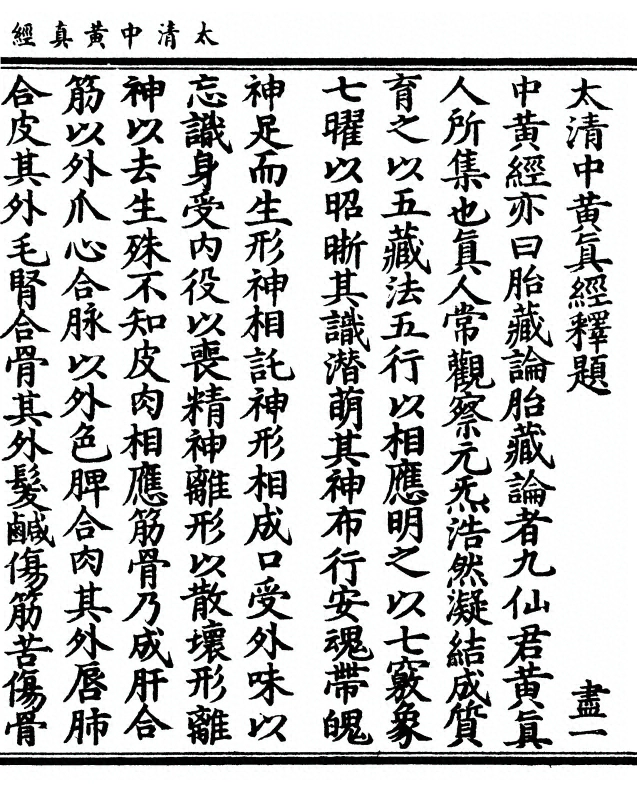 太清中黃真經
太清中黃眞經釋題　盡一
中黃經亦曰胎藏論胎藏論者九仙君黃眞
人所集也眞人常觀察元炁浩然凝結成質
育之以五藏法五行以相應明之以七竅象
七曜以昭晰其識潛萌其神布行安魂帶魄
神足而生形神相託神形相成口受外味以
忘識身受内役以喪精神離形以散壞形離
神以去生殊不知皮肉相應筋骨乃成肝合
筋以外爪心合脉以外色脾合肉其外唇肺
合皮其外毛腎合骨其外髮鹹傷筋苦傷骨